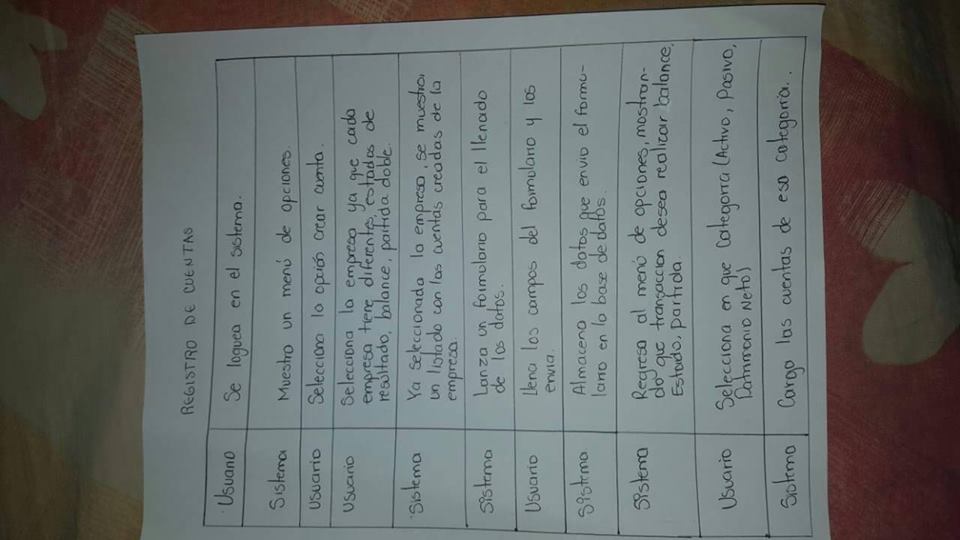 REGISTRO DE CUENTAS
Usuario Se loguea en el sistema.
Sistema Muestra un menú de opciones.
Usuario Selecciona la opción crear cuenta.
Usuario Selecciona la empresa ya que cada
empresa tiene diferentes, estados de
resultado, balance, partida doble.
Sistema Ya seleccionada la empresa, se muestra
un listado con las cuentas creadas de la
empresa.
Sistema Lanza un formulario para el llenado
de los datos.
Usuario Llena los campos del formulario y los
envia.
Sistema Almacena los datos que envio el formu-
lario en la base de datos.
Sistema Regresa al menú de opciones, mostran-
do que transaccion desea realizar balance,
Estado, partida.
Usuario Selecciona en que Categoria (Activo, Pasivo,
Patrimonio Neto)
Sistema Carga las cuentas de esa categoria..